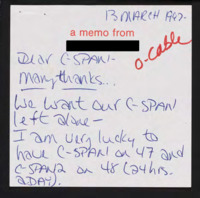 13 MARCH 1997.
a memo from
O-Cable
Dear C-SPAN-
many thanks...
We want our C-SPAN
left alone-
I am very lucky to
have C-SPAN1 on 47 and
C-SPAN2 on 48 (24hrs.
ADAY).